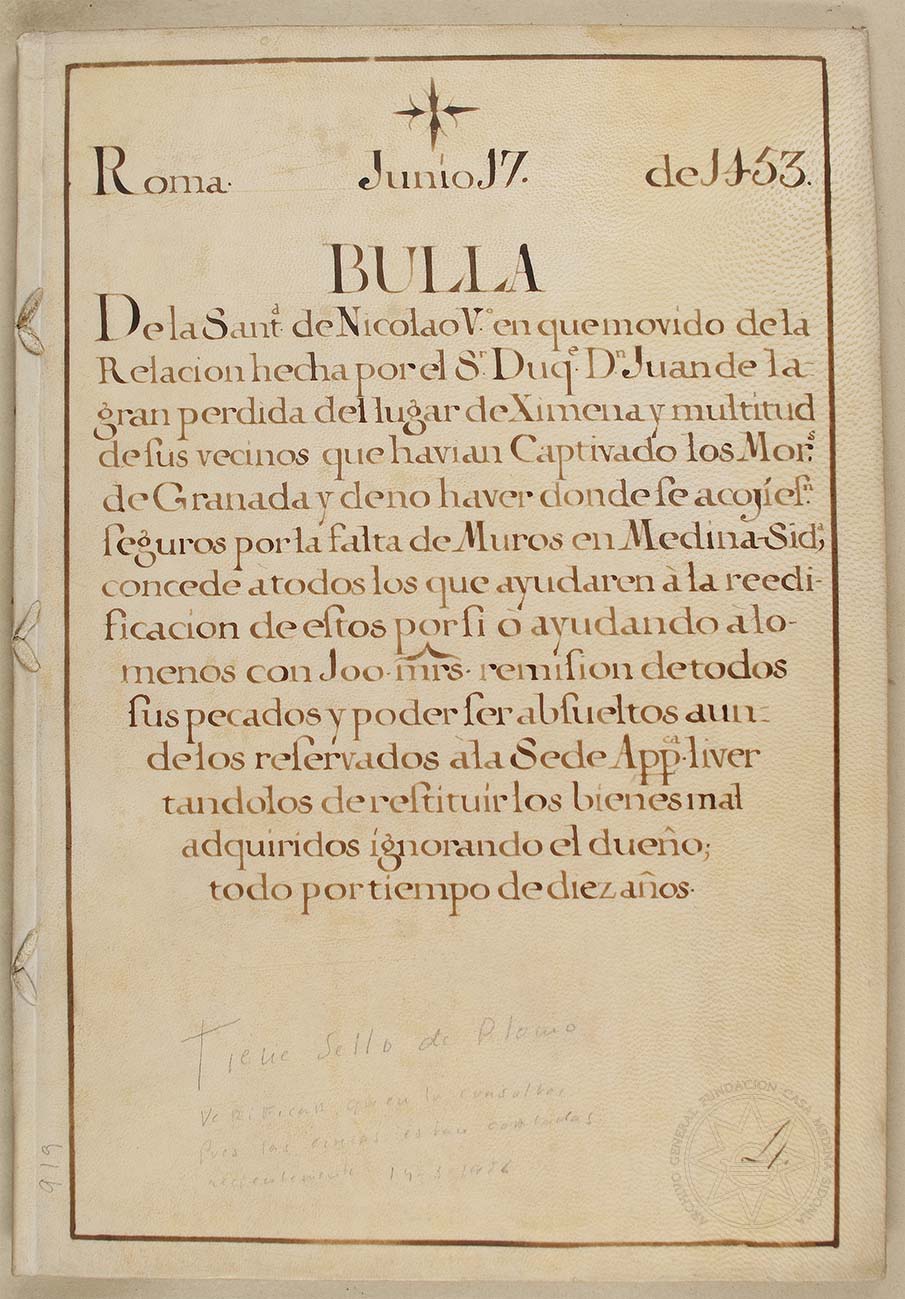 Roma. Junio 17. de 1453.
BULLA
De la Sant.ᵈ de Nicolao V.º en que movido de la
Relacion hecha por el S.ʳ Duq.ᵉ D.ⁿ Juan de la
gran perdida del lugar de Ximena y multitud
de ſus vecinos que havian Captivado los Mor.ˢ
de Granada y de no haver donde ſe acojíeſ.ⁿ
ſeguros por la falta de Muros en Medina-Sid.ᵃ,
concede à todos los que ayudaren à la reedi-
ficacion de eſtos por ſi ò ayudando a lo-
menos con Joo. mrs. remiſion de todos
ſus pecados y poder ſer abſueltos aun-
de los reſervados àla Sede App.ᶜᵃ liver
tandolos de reſtituír los bienes mal
adquiridos ígnorando el dueño;
todo por tiempo de diez años.
Tiene Sello de Plomo
Verificar, quien lo consulte,
Pues las cintas estan cortadas
recientemente
919
ARCHIVO GENERAL FUNDACION CASA MEDINA SIDONIA